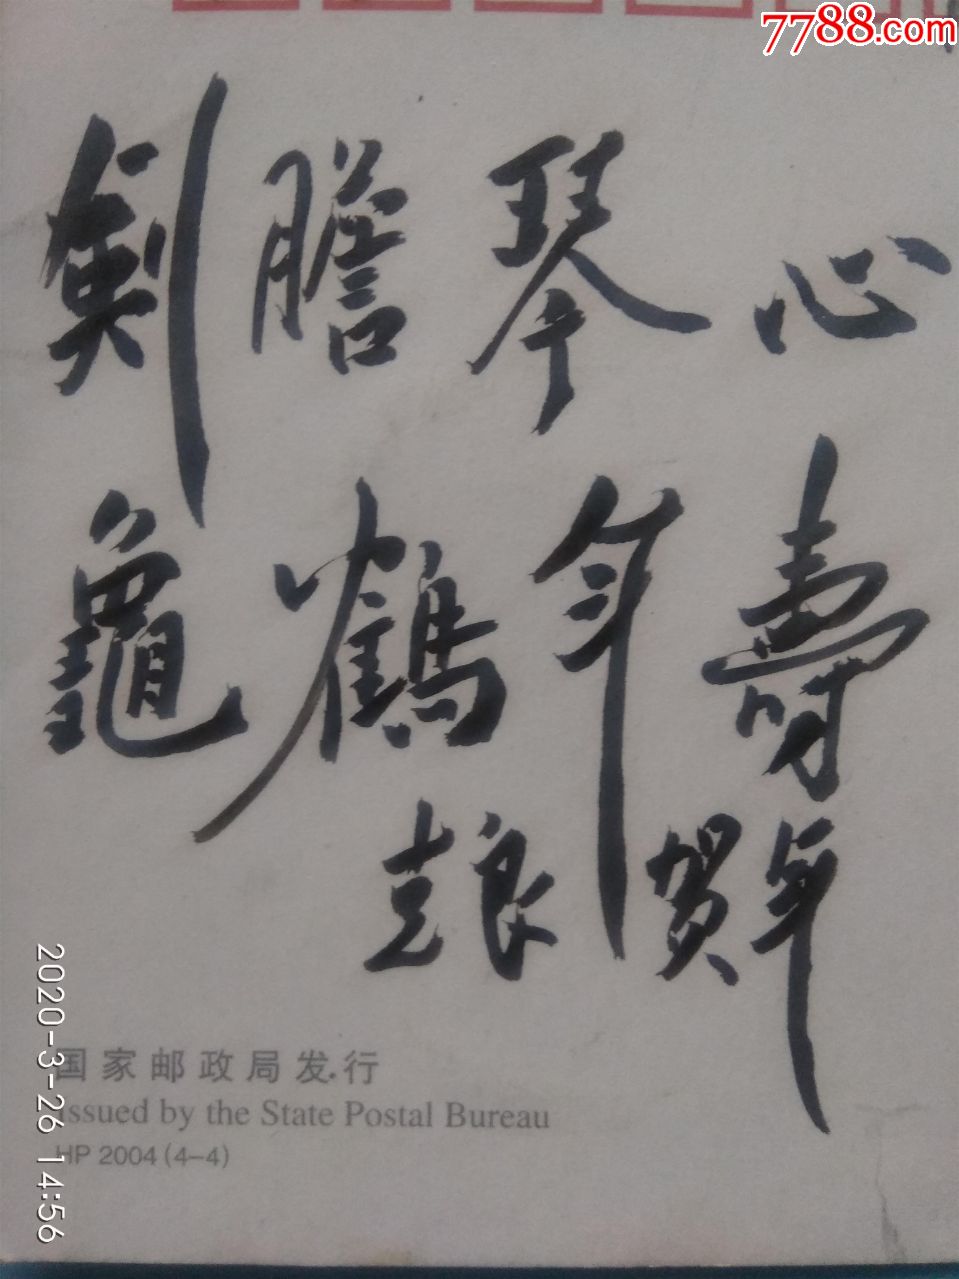 7788.com
剣膽琴心
龜鶴年壽
良贺年
国家邮政局发行
Issued by the State Postal Bureau
HP 2004 (4-4)
2020-3-26 14:56